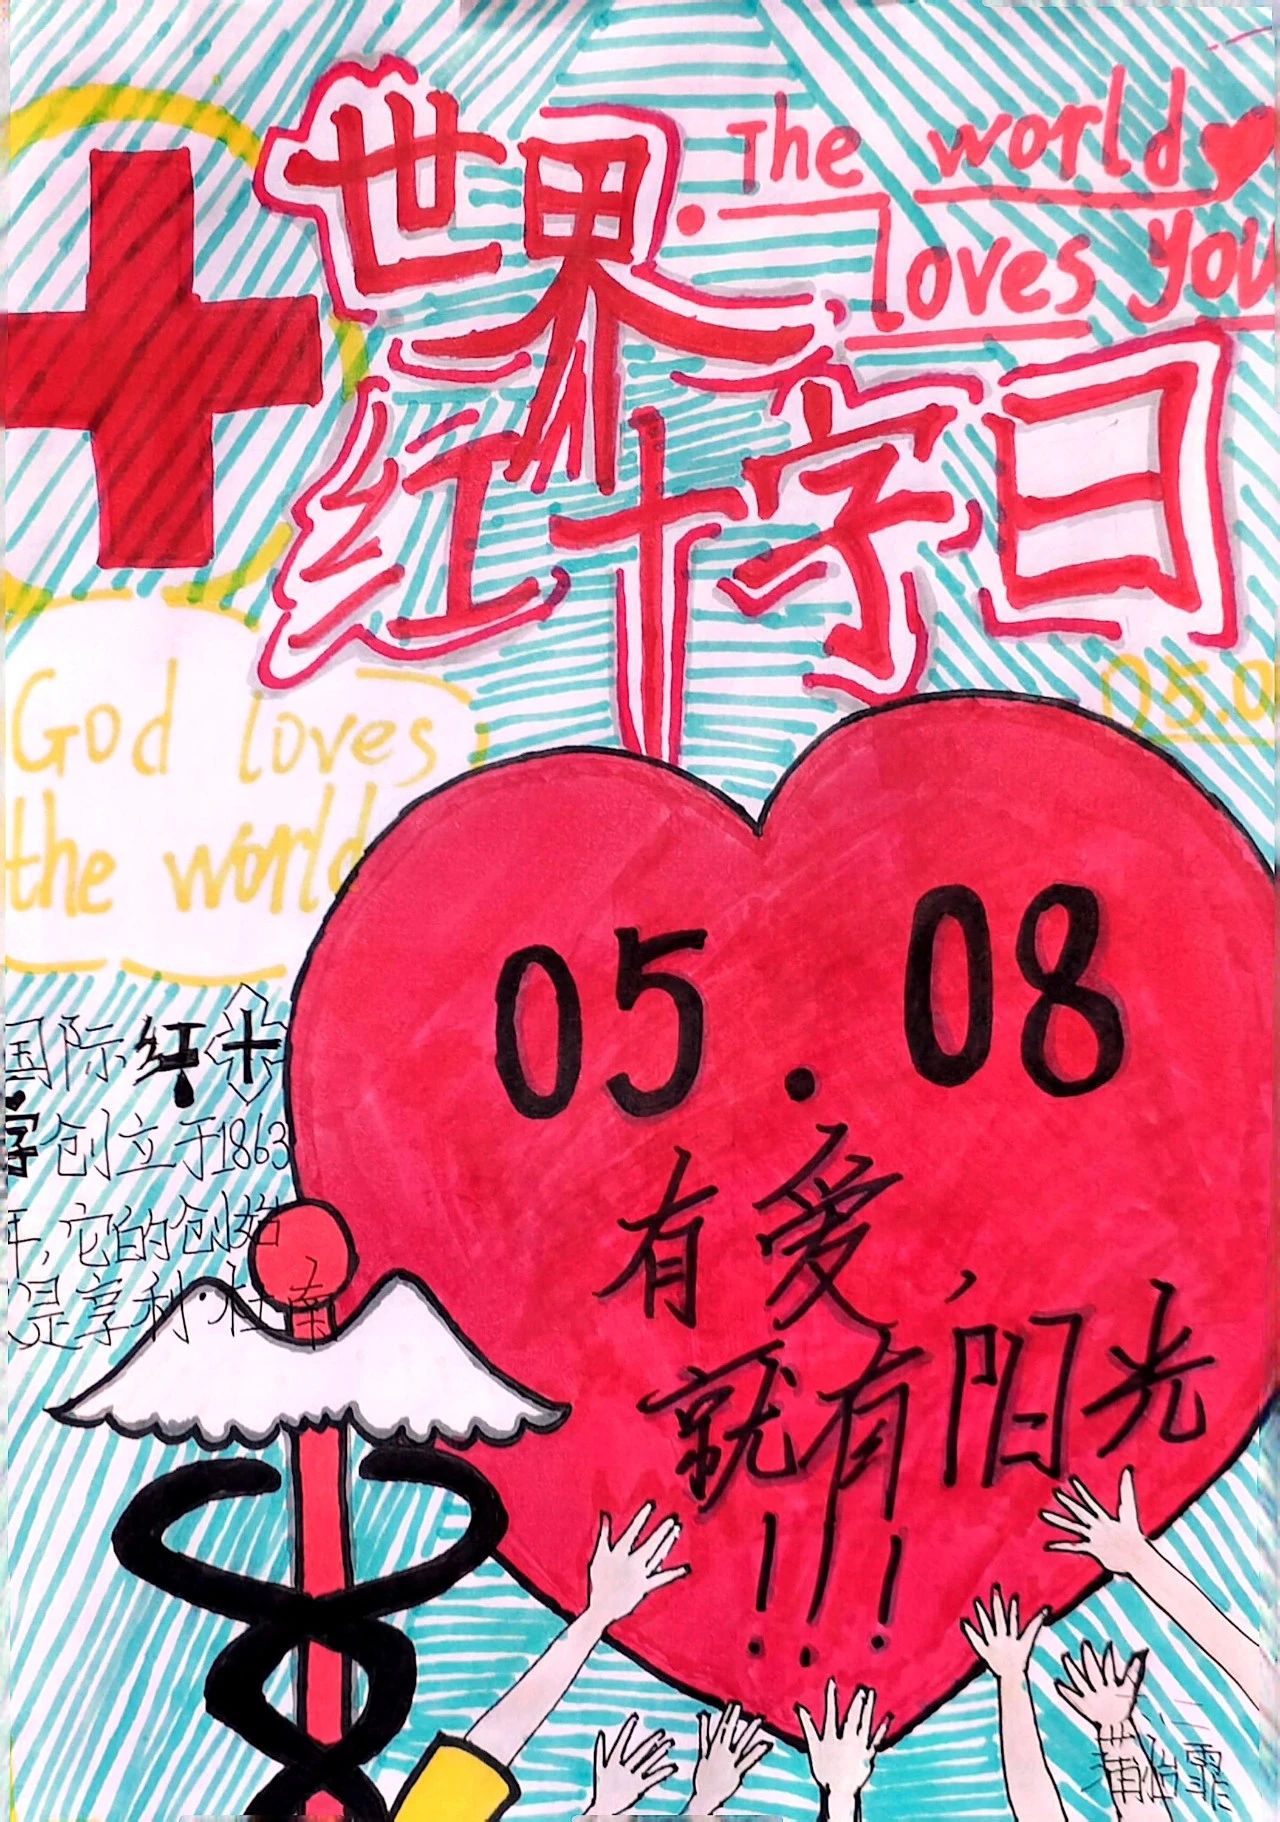 世界
The world
loves you
红十字日
05.0
God loves
the world
05.08
国际红十
字创立于1863
年,它的创始
人是享利·杜南
有爱,
就有阳光
!!!
蒲怡霏